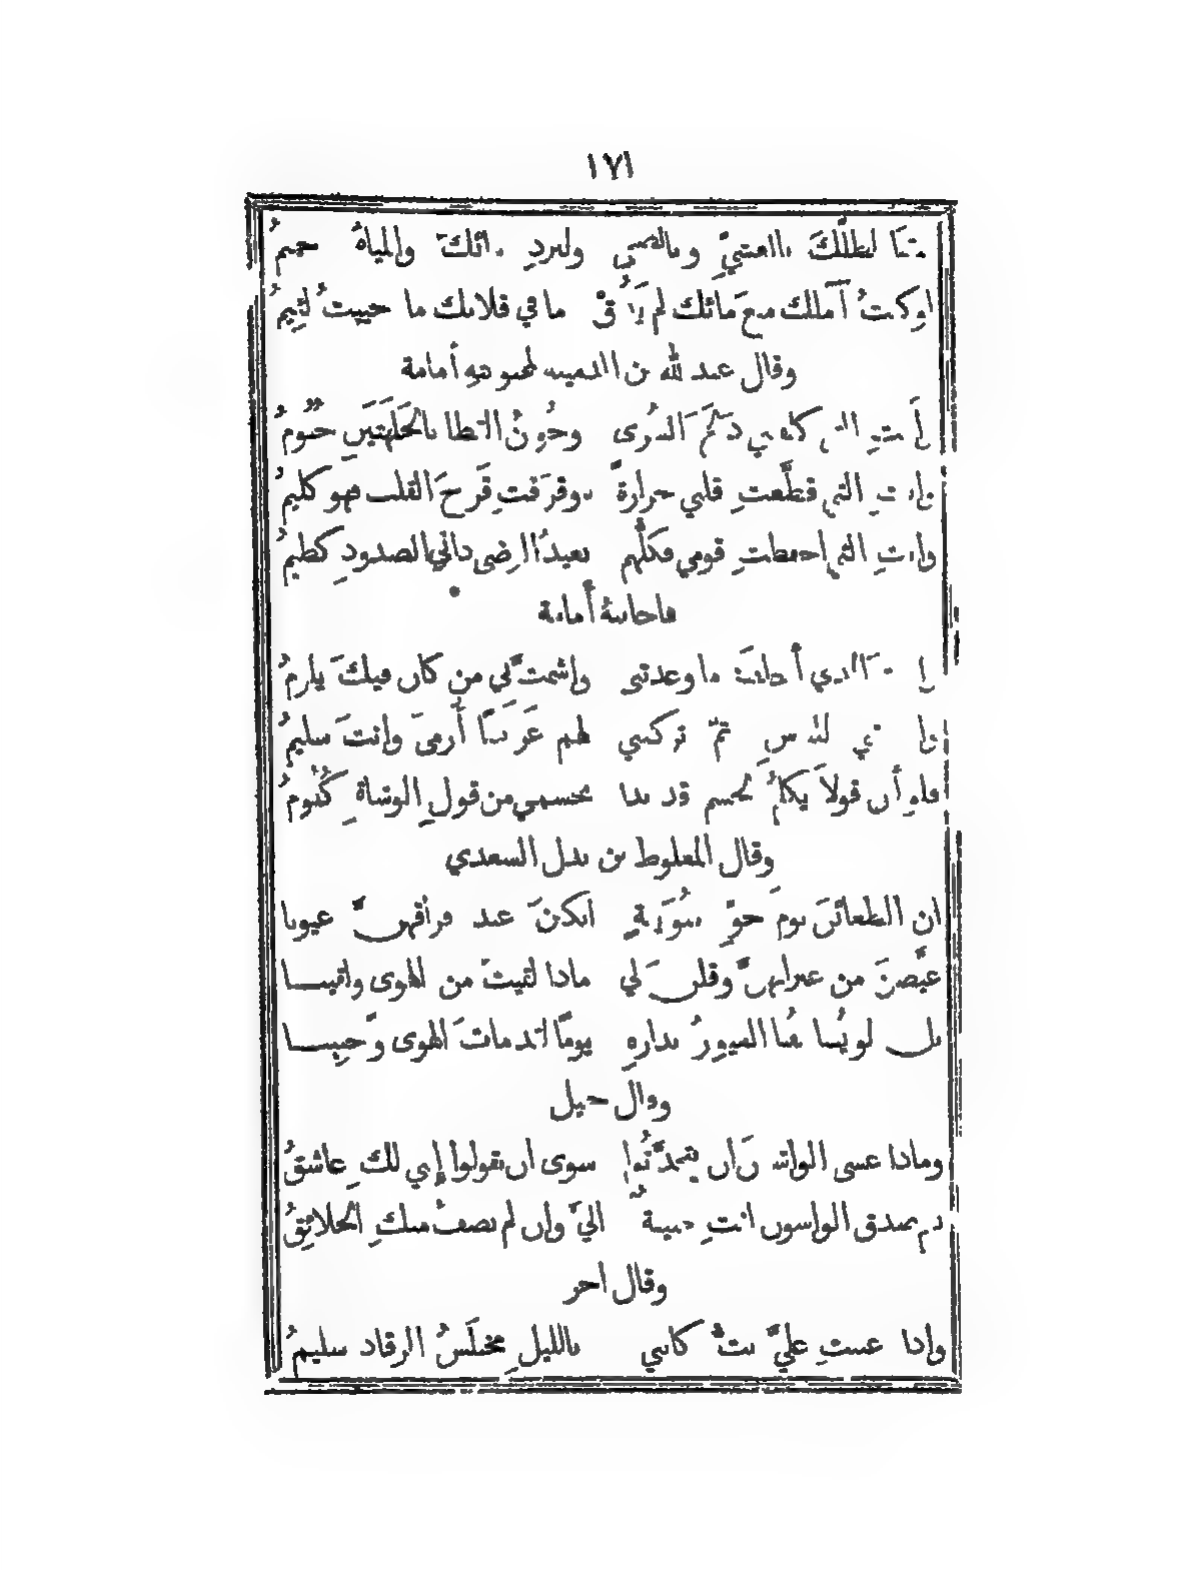 ١٧١
سقيا لظلّك بالعشيّ وبالضحى ولبردِ مائك والمياهُ حميمُ
لو كنتُ أملك منع مائك لم يذُقْ ما في قلاتك ما حييتُ لئيمُ
وقال عبد الله بن الدمينه لمحبوبته أمامة
وأنتِ التي كلفتِني دَلَجَ السُرى وجُونُ القطا بالجَلهَتَينِ جُثُومُ
وأنتِ التي قطَّعتِ قلبي حرارةً وقرَفتِ قَرحَ القلب فهو كليمُ
وأنتِ التي أحفظتِ قومي فكلُّهم بعيدُ الرِضى داني الصدودِ كظيمُ
فأجابتهُ أمامة
وأنتَ الذي أخلفتَني ما وعدتني وأشمتَّ بي من كان فيكَ يلومُ
وأبرزتني للناسِ ثمّ تركتني لهم غَرَضًا أُرمى وأنتَ سليمُ
فلو أن قولاً يكلمُ الجسم قد بدا بجسمي من قولِ الوشاةِ كُلُومُ
وقال المعلوط بن بدل السعدي
ان الظعائنَ يوم حوِّ سُوَيقةٍ أبكينَ عند فراقهنَّ عيونا
غيَّضنَ من عبراتهنَّ وقلن لي ماذا لقيتَ من الهوى ولقينا
بل لو يُساعفنا الغيورُ بدارهِ يومًا لقد مات الهوى وحيينا
وقال جميل
وماذا عسى الواشون أن يتحدَّثُوا سوى أن يقولوا إني لكِ عاشقُ
نعم صدق الواشون أنتِ حبيبةٌ اليّ وإن لم تصفُ منكِ الخلائقُ
وقال آخر
وإذا عتبتِ عليَّ بتُّ كأنني بالليلِ مختلَسُ الرقاد سليمُ